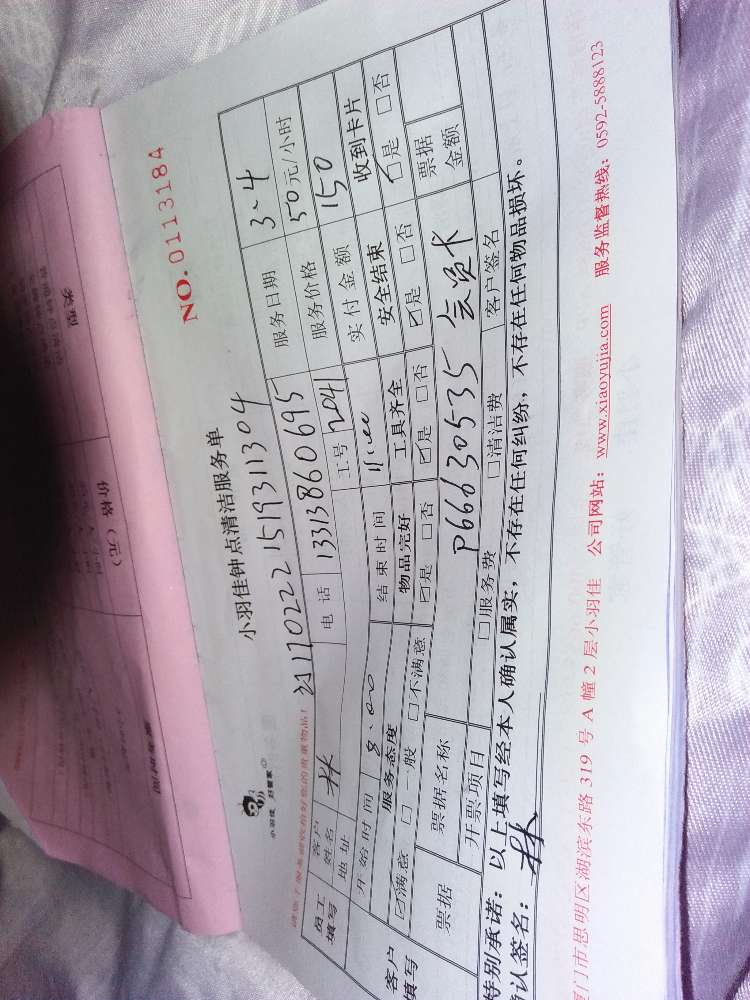 NO.0113184
小羽佳钟点清洁服务单
小羽佳 好管家
请您了服务前收拾好您的贵重物品!
211702221519311304
员工填写 客户姓名 林 电话 13313860695 服务日期 3-4
地址 工号 1204 服务价格 50元/小时
开始时间 8:00 结束时间 11:00 实付金额 150
客户填写 服务态度 物品完好 工具齐全 安全结束 收到卡片
☑满意 □一般 □不满意 ☑是 □否 ☑是 □否 ☑是 □否 ☑是 □否
票据 票据名称 P66630535 会员卡 票据金额
开票项目 □服务费 □清洁费 客户签名
特别承诺:以上填写经本人确认属实,不存在任何纠纷,不存在任何物品损坏。
确认签名:林
厦门市思明区湖滨东路319号A幢2层小羽佳 公司网站:www.xiaoyujia.com 服务监督热线:0592-5888123
类型
价格(元)